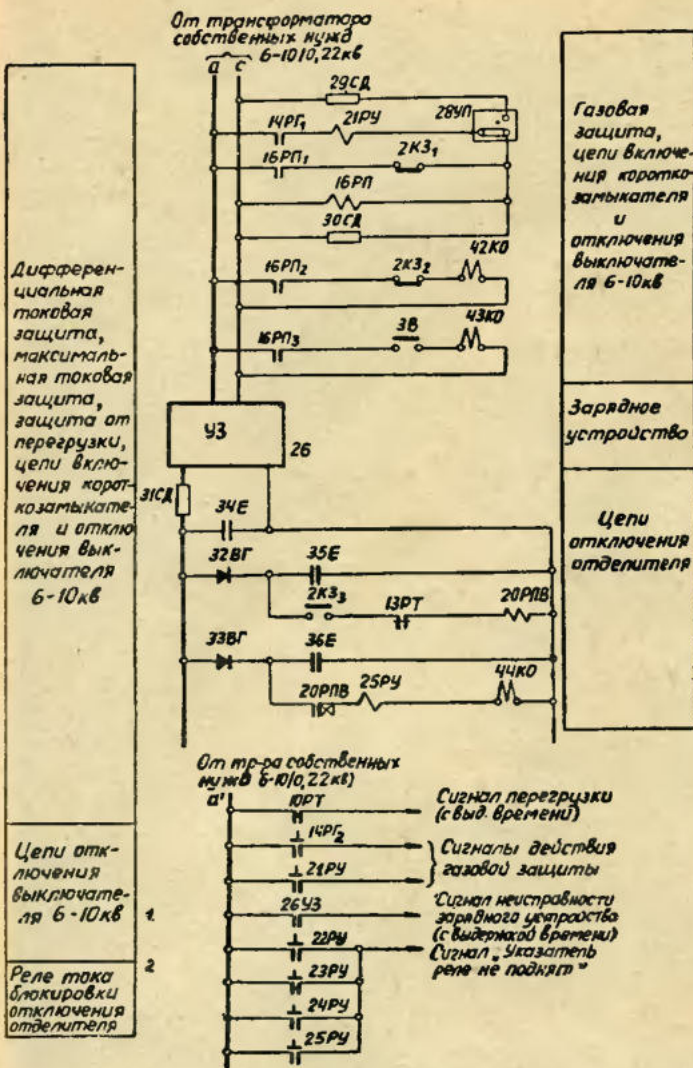 От трансформатора
собственных нужд
6-10/0,22кв
а с
29СД
14РГ₁ 21РУ 28УП
16РП₁ 2КЗ₁
16РП
30СД
16РП₂ 2КЗ₂ 42КО
16РП₃ 3В 43КО
УЗ
26
31СД
34Е
32ВГ 35Е
2КЗ₃ 13РТ 20РПВ
33ВГ 36Е
20РПВ 25РУ 44КО
Дифферен-
циальная
токовая
защита,
максималь-
ная токовая
защита,
защита от
перегрузки,
цепи вклю-
чения корот-
козамыкате-
ля и отклю
чения вык-
лючателя
6-10кв
Цепи отк-
лючения
выключате-
ля 6-10кв
1.
Реле тока
блокировки
отключения
отделителя
2
Газовая
защита,
цепи включе-
ния коротко-
замыкателя
и
отключения
выключате-
ля 6-10кв
Зарядное
устройство
Цепи
отключения
отделителя
От тр-ра собственных
нужд 6-10/0,22кв)
а'
10РТ
Сигнал перегрузки
(с выд. времени)
14РГ₂
21РУ
Сигналы действия
газовой защиты
26УЗ
Сигнал неисправности
зарядного устройства
(с выдержкой времени)
22РУ
Сигнал „Указатель
реле не поднят"
23РУ
24РУ
25РУ